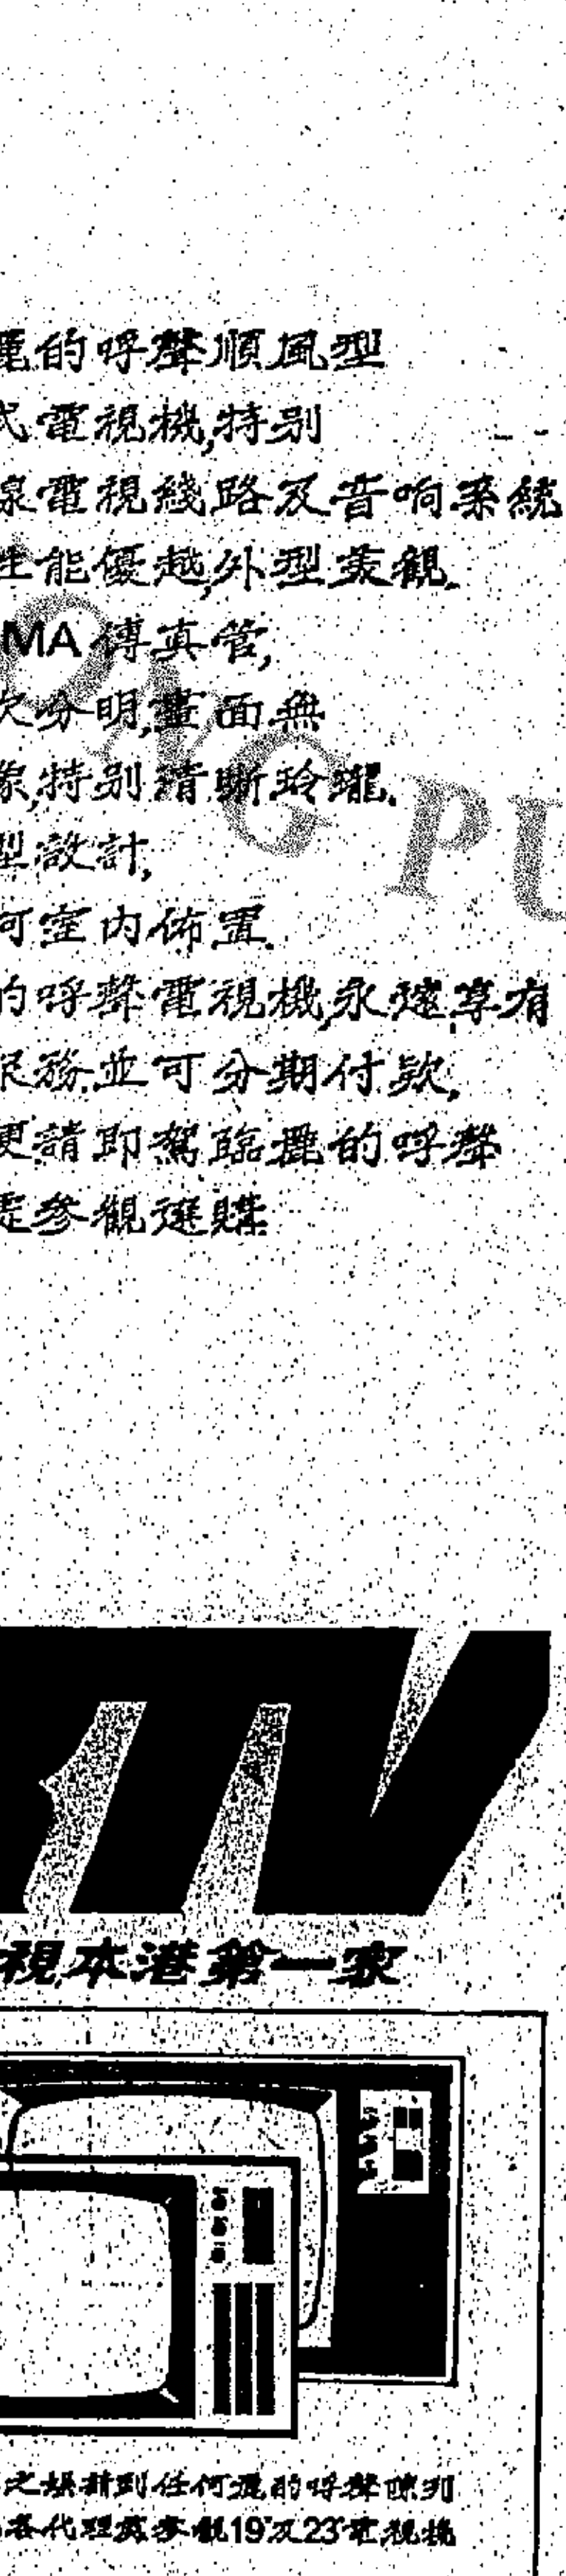 的呼聲順風型
式電視機,特别
線電視綫路及音响系統
性能優越,外型美觀.
MA 傳真管,
次分明,畫面無
像,特别清晰玲瓏.
型設計,
何室內佈置.
的呼聲電視機,永遠享有
服務.並可分期付欵.
便請即駕臨麗的呼聲
處參觀選購.
PU
TV
視本港第一家
到任何麗的呼聲陳列
各代理處參觀19"及23"電視機